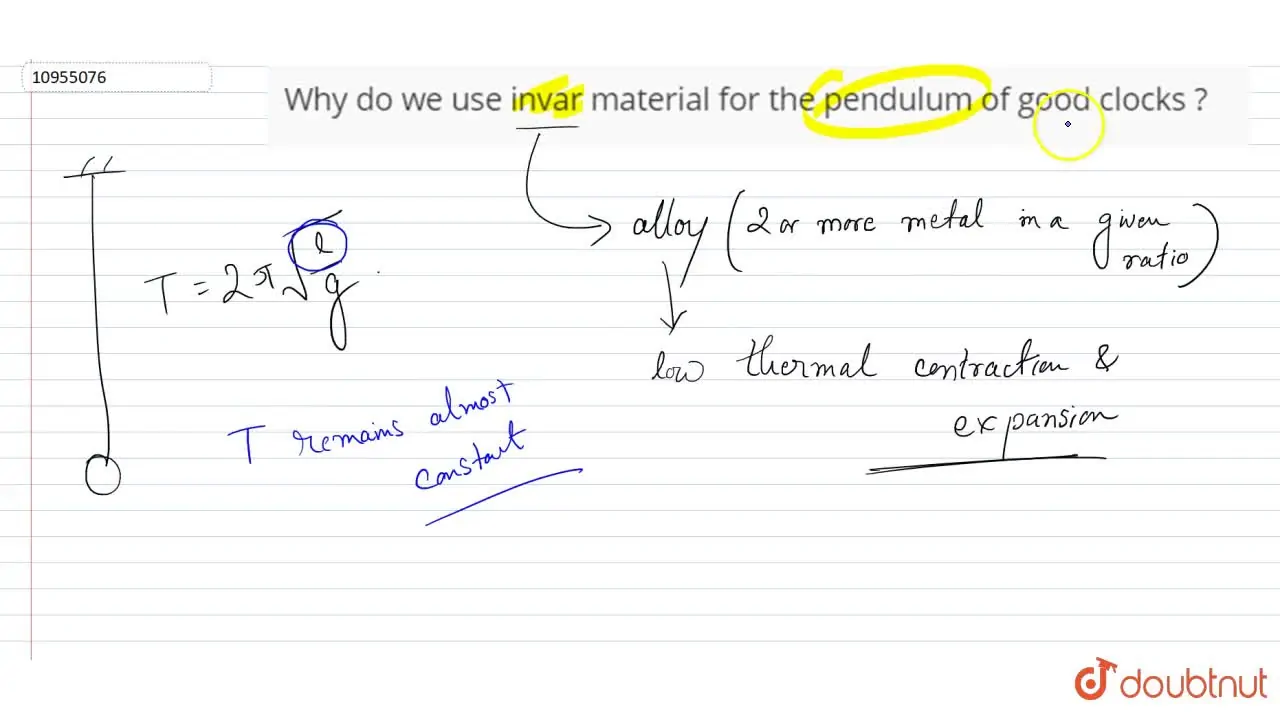 10955076
Why do we use invar material for the pendulum of good clocks ?
alloy (2 or more metal in a given
ratio)
T = 2π√l/g
low thermal contraction &
expansion
T remains almost
constant
doubtnut